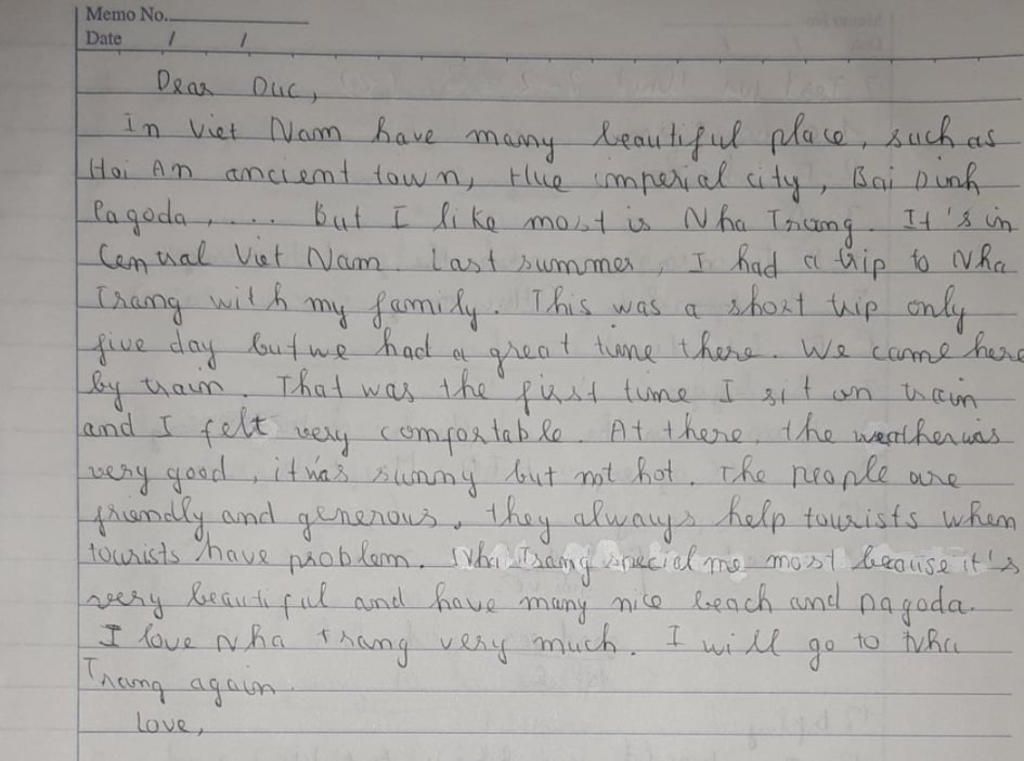 Memo No.
Date / /
Dear Duc,
In Viet Nam have many beautiful place, such as
Hoi An ancient town, Hue imperial city, Bai Dinh
Pagoda, .... But I like most is Nha Trang. It's in
Central Viet Nam. Last summer, I had a trip to Nha
Trang with my family. This was a short trip only
five day but we had a great time there. We came here
by train. That was the first time I sit on train
and I felt very comfortable. At there, the weather was
very good, it was sunny but not hot. The people are
friendly and generous, they always help tourists when
tourists have problem. Nha Trang special me most because it's
very beautiful and have many nice beach and pagoda.
I love Nha trang very much. I will go to Nha
Trang again.
Love,